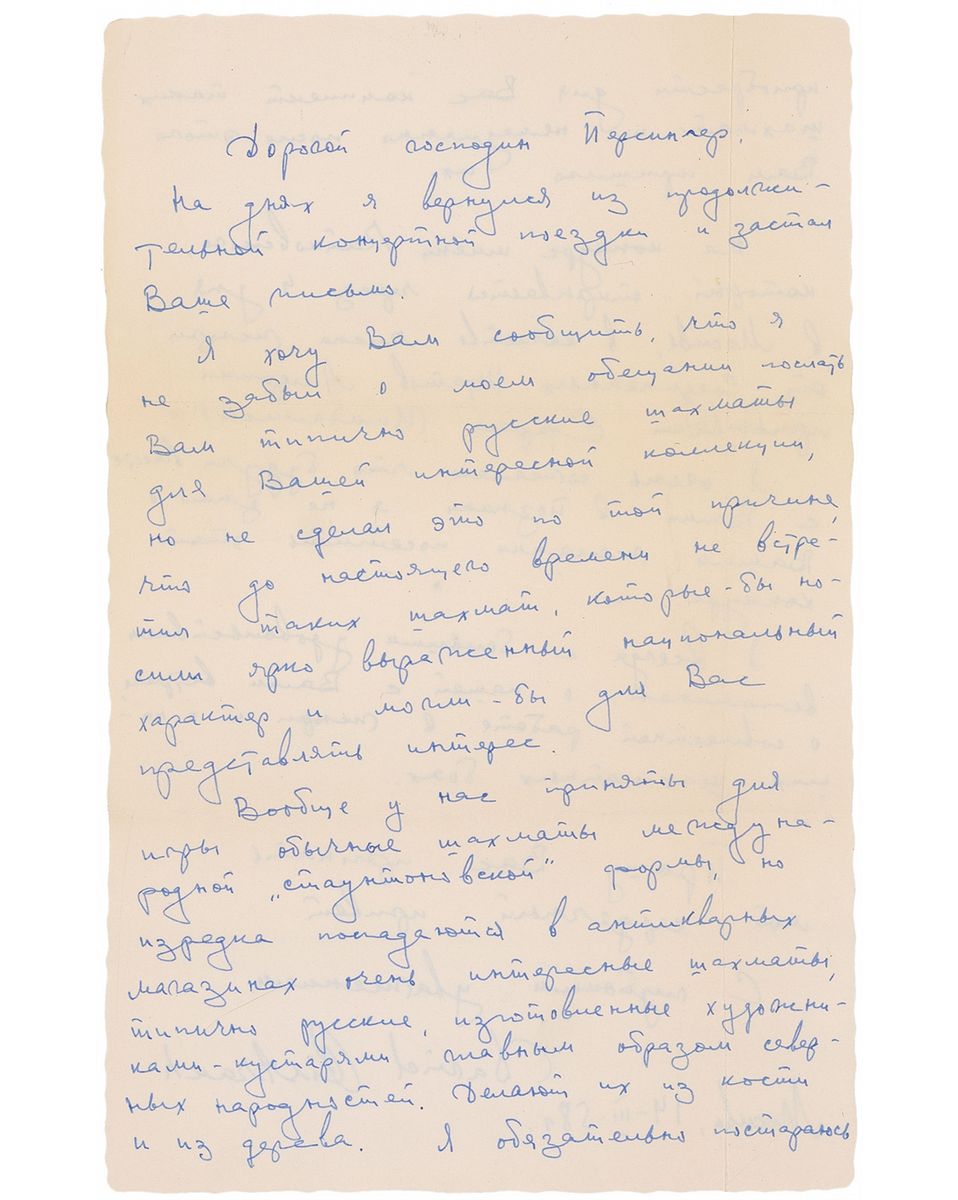 Дорогой господин Персингер.
На днях я вернулся из продолжи-
тельной концертной поездки и застал
Ваше письмо.
Я хочу Вам сообщить, что я
не забыл о моем обещании послать
Вам типично русские шахматы
для Вашей интересной коллекции,
но не сделал это по той причине,
что до настоящего времени не встре-
тил таких шахмат, которые-бы но-
сили ярко выраженный национальный
характер и могли-бы для Вас
представлять интерес.
Вообще у нас приняты для
игры обычные шахматы междуна-
родной „стаунтоновской" формы, но
изредка попадаются в антикварных
магазинах очень интересные шахматы,
типично русские, изготовленные художни-
ками-кустарями главным образом север-
ных народностей. Делают их из кости
и из дерева. Я обязательно постараюсь